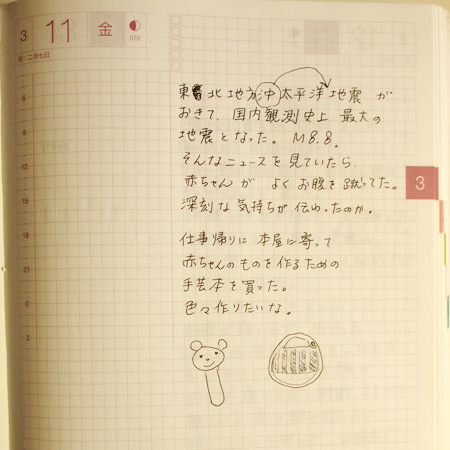 3 11 金
070
二月七日
東北地方沖太平洋地震が
おきて、国内観測史上 最大の
地震となった。M8.8。
そんなニュースを見ていたら、
赤ちゃんが よくお腹を蹴ってた。
深刻な気持ちが伝わったのか。
仕事帰りに本屋に寄って
赤ちゃんのものを作るための
手芸本を買った。
色々作りたいな。
3
6
9
12
15
18
21
0
3